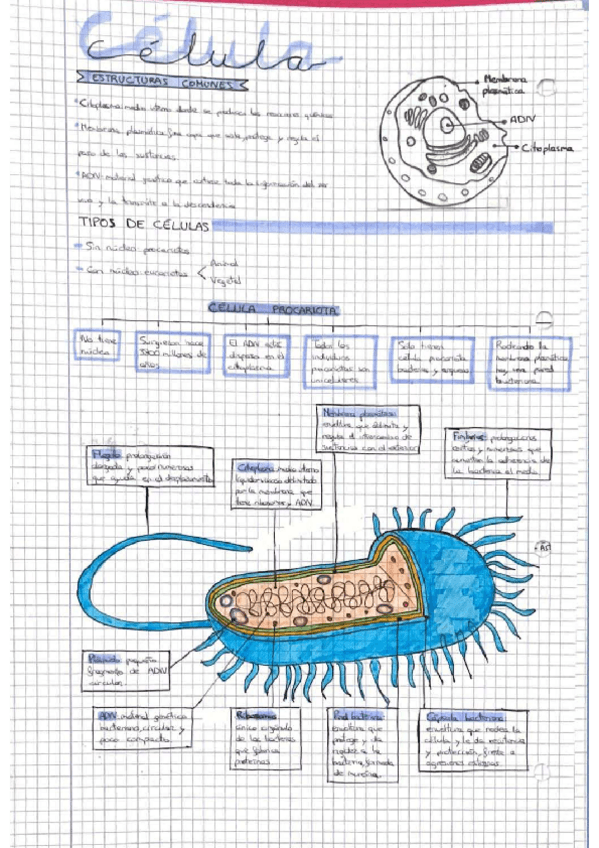 Célula
ESTRUCTURAS COMUNES
Citoplasma: medio interno donde se producen las reacciones químicas
Membrana plasmática: fina capa que aisla, protege y regula el
paso de las sustancias
ADN: material genético que contiene toda la información del ser
vivo y la transmite a la descendencia
Membrana
plasmática
ADN
Citoplasma
TIPOS DE CÉLULAS
Sin núcleo procariotas
Con núcleo eucariotas
Animal
Vegetal
CÉLULA PROCARIOTA
No tiene
núcleo
Surgieron hace
millones de
años
El ADN está
disperso en el
citoplasma
Todos los
individuos
procariotas son
unicelulares
Solo tienen
célula procariota
bacterias y arqueas
Rodeando la
membrana plasmática
hay una pared
bacteriana
Membrana plasmática:
estructura que delimita y
regula el intercambio de
sustancias con el exterior
Flagelo: prolongación
alargada y poco numerosas
que ayuda en el desplazamiento
Citoplasma: medio interno
líquido viscoso delimitado
por la membrana que
tiene ribosomas y ADN
Fimbrias: prolongaciones
cortas y numerosas que
aumentan la adherencia de
la bacteria al medio
Plásmido: pequeño
fragmento de ADN
circular
ADN: material genético
bacteriano, circular y
poco compacto
Ribosomas:
único orgánulo
de las bacterias
que fabrica
proteínas
Pared bacteriana:
estructura que
protege y da
rigidez a la
bacteria, formada
de mureína
Cápsula bacteriana:
estructura que rodea la
célula y le da resistencia
y protección frente a
agresiones externas